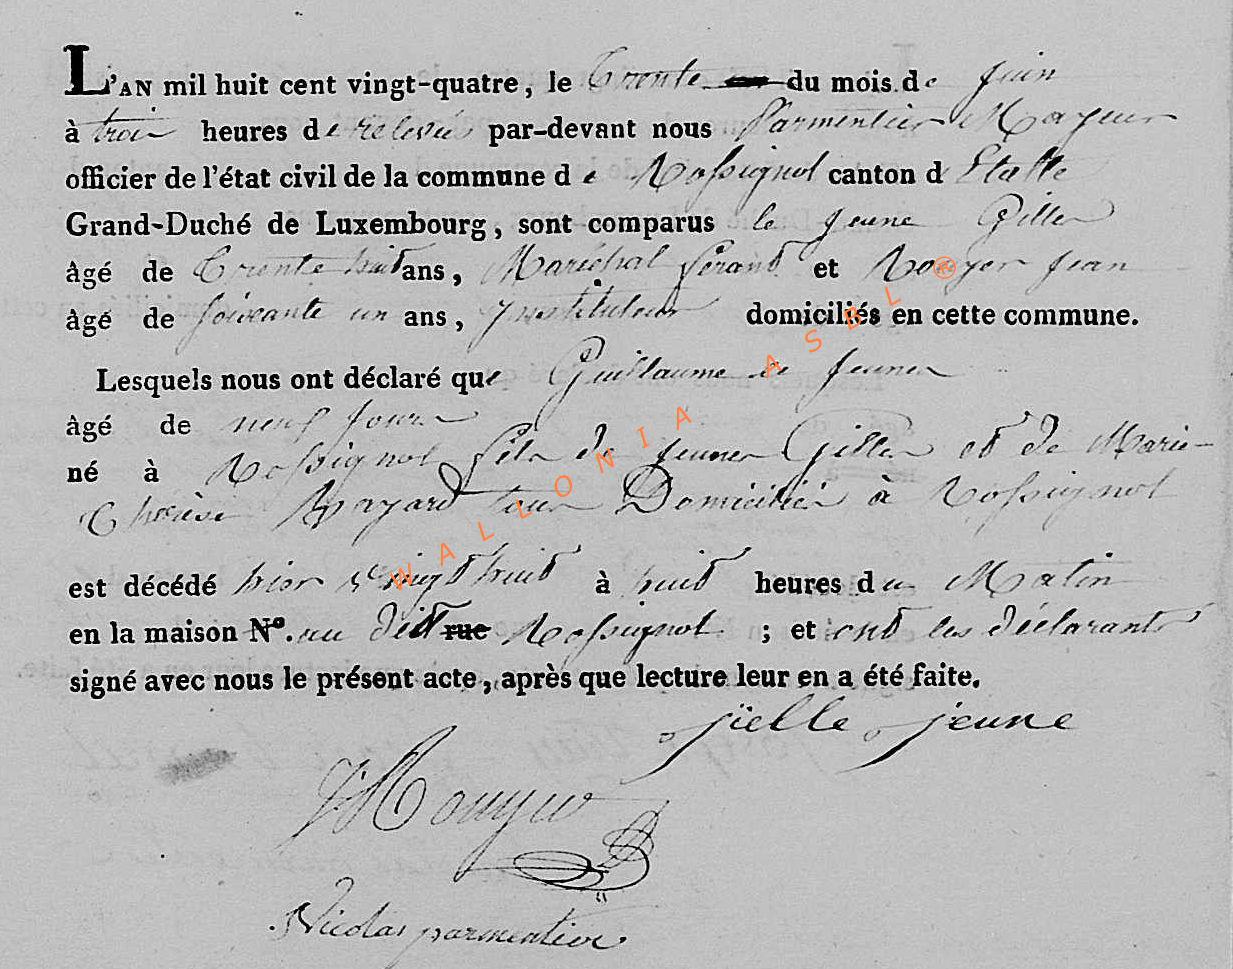 L'AN mil huit cent vingt-quatre, le Trente du mois de Juin
à trois heures de relevée par-devant nous Parmentier Mayeur
officier de l'état civil de la commune de Rossignol canton d'Etalle
Grand-Duché de Luxembourg, sont comparus le Jeune Gilles
âgé de Trente huit ans, Maréchal férant et Rouyer Jean
âgé de soixante un ans, Instituteur domiciliés en cette commune.
Lesquels nous ont déclaré que Guillaume Le Jeune
âgé de neuf jours
né à Rossignol fils de Jeune Gilles et de Marie-
Thérèse Bayard tous Domiciliés à Rossignol
est décédé hier vingt huit à huit heures du Matin
en la maison N°. au dit rue Rossignol ; et ont les déclarants
signé avec nous le présent acte, après que lecture leur en a été faite.
jielle jeune
J Rouyer
Nicolas parmentier
WALLONIA ASBL ®